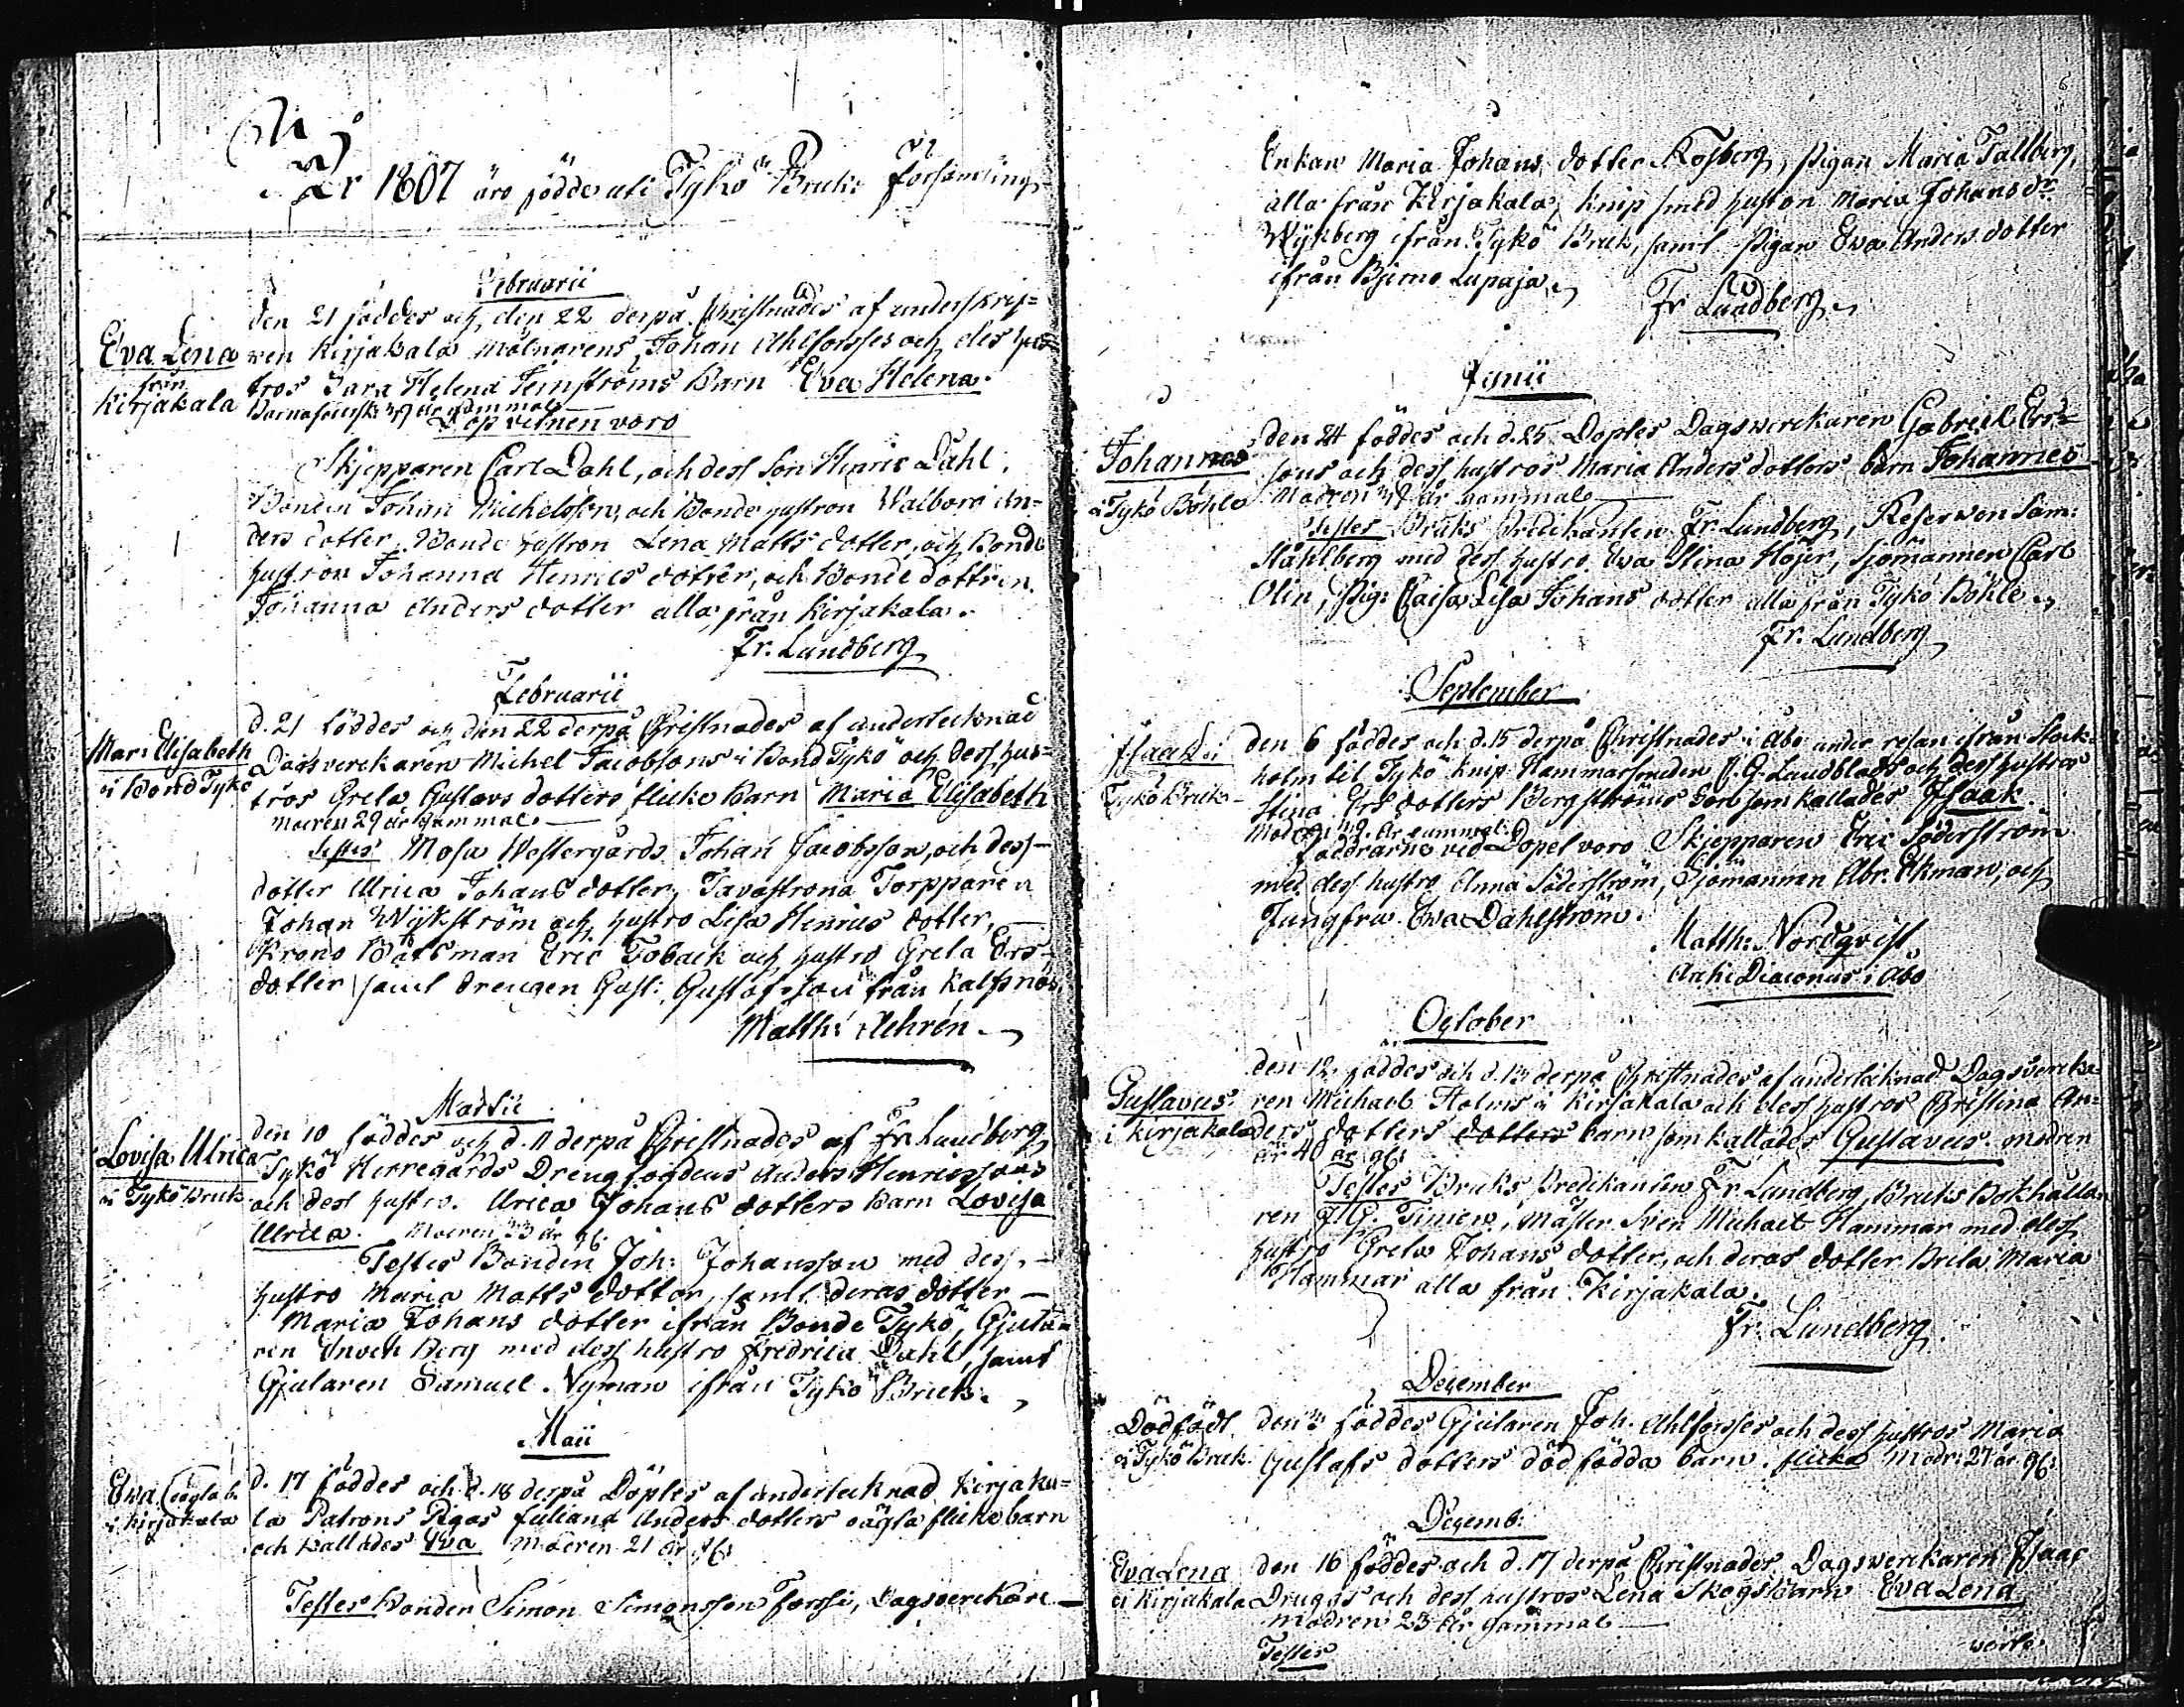 År 1807 äro födde uti Tykö Bruks församling
Februarii
den 21 föddes och den 22 derpå Christnades af underskrif=
Eva Lena
från
Kirjakala
ven Kirjakala Mölnarens Johan Ahlforsses och des hus=
tros Sara Helena Ternströms Barn Eva Helena.
år gammal
Dop vitnen voro
Skjepparen Carl Dahl, och dess Son Henric Dahl,
Bonden Johan Michelsson, och Bonde hustron Walborg An=
ders dotter, Bonde hustron Lena Matts dotter, och Bonde
hustron Johanna Henrics dotter, och Bonde dottren
Johanna Anders dotter alla från Kirjakala.
Fr. Lundberg
Februarii
Mari Elisabeth
i Bond Tykö
d. 21 föddes och den 22 derpå Christnades af undertecknad
Dagsverckaren Michel Jacobsons i Bond Tykö och dess hus=
tros Greta Gustavs dotters flicke Barn Maria Elisabeth
Modren 29 år gammal.
Testes Mosu Westergårds Johan Jacobsson, och dess
dotter Ulrica Johans dotter, Tavastrona Torpparen
Johan Wykström och hustro Lisa Henrics dotter,
Krono Båtsman Eric Toback och hustro Greta Ers=
dotter samt drengen Gust: Gustafsson från Kalfsnäs
Matth: Aehrén.
Martii
Lovisa Ulrica
i Tykö Bruk
den 10 föddes och d. 11 derpå Christnades af Fr. Lundberg
Tykö Herregårds Drengfogdens Anders Henricssons
och dess hustro Ulrica Johans dotters Barn Lovisa
Ulrica. Modren 33 år gl.
Testes Bonden Joh: Johansson med dess
hustro Maria Matts dotter, samt deras dotter
Maria Johans dotter ifrån Bonde Tykö, Gjuta=
ren Enoch Berg med dess hustro Fredrica Dahl, samt
Gjutaren Samuel Nyman ifrån Tykö Bruk.
Maii
Ewa oägta b.
i Kirjakala
d. 17 föddes och d. 18 derpå Döptes af undertecknad Kirjaka=
la Patrons Pigas Juliana Anders dotters oägta flicke barn
och kallades Eva modren 21 år gl:
Testes Bonden Simon Simonsson Forssi, Dagsverckare
Enkan Maria Johans dotter Kosberg, Pigan Maria Tallberg,
alla från Kirjakala, Knip smed hustron Maria Johans dr
Wykberg ifrån Tykö Bruk, samt Pigan Ewa Anders dotter
ifrån Bjerno Lupaja.
Fr Lundberg
Junii
Johannes
i Tykö Böhle
den 24 föddes och d. 25 Döptes Dagsverckaren Gabriel Ers=
sons och dess hustros Maria Anders dotters barn Johannes
Modren år gammal.
Testes Bruks Predikanten Fr. Lundberg, Reserven Sam:
Ståhlberg med dess hustro Ewa Stina Höjer, Sjömannen Carl
Olin, Pig: Caisa Lisa Johans dotter alla från Tykö Böhle.
Fr. Lundberg
September
Isaac i
Tykö Bruk
den 6 föddes och d. 15 derpå Christnades i Åbo under resan ifrån Stock=
holm til Tykö Knip Hammarsmeden J. G. Lundblads och dess hustros
Stina Ers dotters Bergströms Son som kallades Isaak.
år gammal.
Faddrarne vid Dopet voro Skjepparen Eric Söderström
med dess hustro Anna Söderström, Sjömannen Abr. Ekman, och
Jungfru Ewa Dahlström.
Matth: Nordqvist
Archi Diaconus i Åbo
October
Gustavus
i Kirjakala
den 12 föddes och d. 13 derpå Christnades af undertecknad Dagsvercka=
ren Michael Holms i Kirjakala och dess hustros Christina An=
ders dotters dotters barn som kallades Gustavus. modren
är 40 år gl:
Testes Bruks Predikanten Fr Lundberg, Bruks Bokhålla=
ren J. G. Timen, Mäster Sven Michael Hammar med dess
hustro Greta Johans dotter, och deras dotter Brita Maria
Hammar alla från Kirjakala.
Fr. Lundberg
December
Dödfödt
i Tykö Bruk
den 3 föddes Gjutaren Joh. Ahlforsses och dess hustros Maria
Gustafs dotters död födda barn. flicka Modr: 27 år gl:
Decemb:
Eva Lena
i Kirjakala
den 16 föddes och d. 17 derpå Christnades Dagsverckaren Isaac
Druggs och dess hustros Lena Skogs barn Eva Lena
modren 23 år gammal
Testes